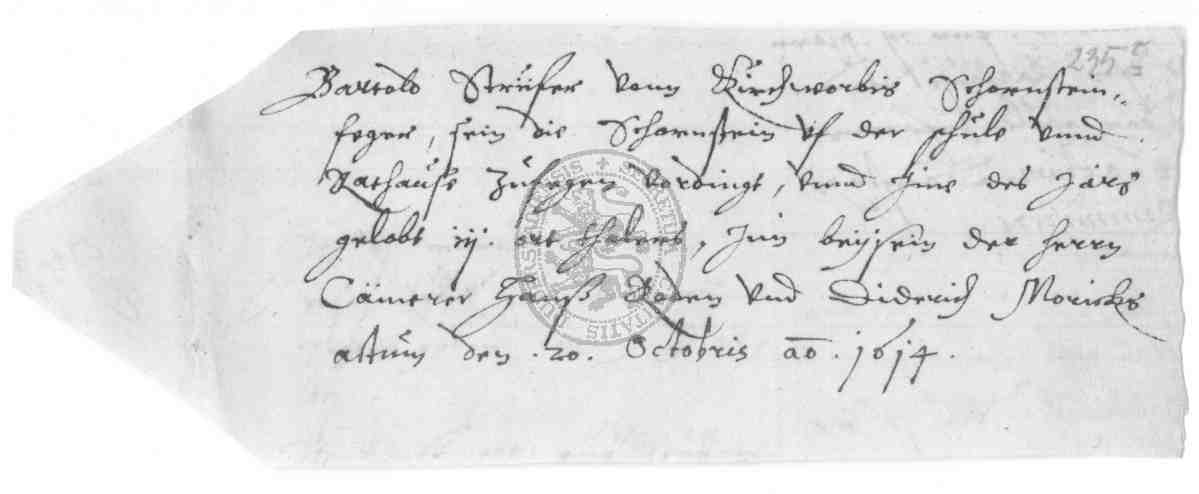 235r
Bartold Strüfer vonn Kirchworbis Schornstein-
feger, sein die Schornstein vf der schule vnnd
Rathause Zufegen verdingt, vnnd Ime des Jars
gelobt iij ort thalers, Inn beysein der Herrn
Cämerer Hanß Roden vnd Diderich Moricks
actum den .20. Octobris ao. 1614.